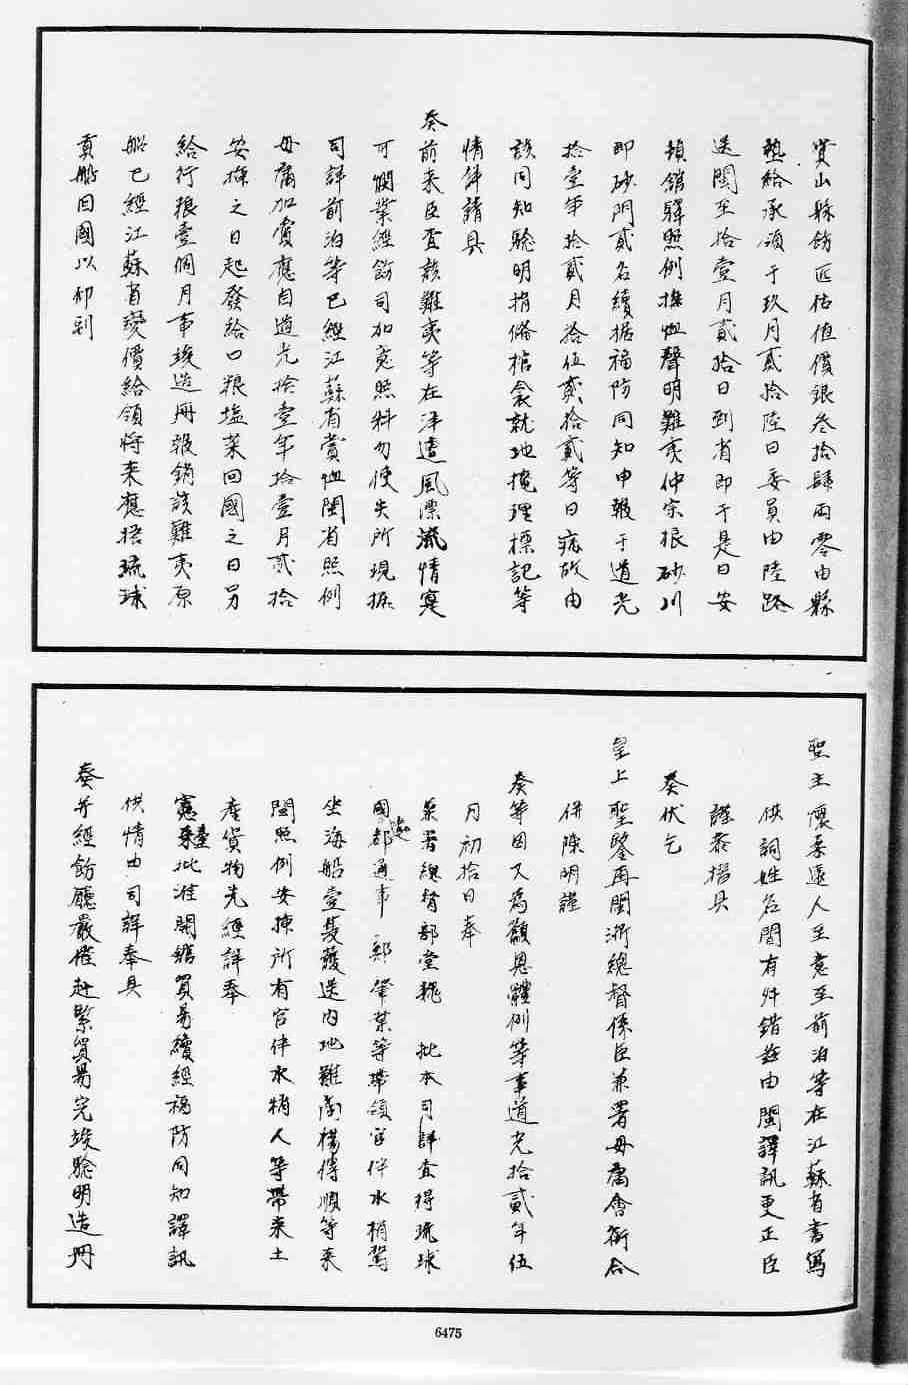 寶山縣飭匠估值價銀叁拾肆兩零由縣
墊給承領于玖月貳拾陸日委員由陸路
送閩至拾壹月貳拾日到省即于是日安
頓館驛照例撫恤聲明難夷仲宗根砂川
即砂門貳名續据福防同知申報于道光
拾壹年拾貳月拾伍貳拾貳等日病故由
該同知驗明捐俻棺衾就地掩埋標記等
情佯請具
奏前来臣查該難夷等在洋遭風漂流情寔
可憫業經飭司加寬照料勿使失所現據
司詳前泊等已經江蘇省賞恤閩省照例
毋庸加賞應自道光拾壹年拾壹月貳拾
安揷之日起發給口粮塩菜回國之日另
給行粮壹個月事竣造冊報銷該難夷原
船已經江蘇省變價給領将来應搭琉球
貢船回國以仰副
聖主懷柔遠人至意至前泊等在江蘇省書寫
供詞姓名間有舛錯玆由閩譯訊更正臣
謹恭摺具
奏伏乞
皇上聖鑒再閩浙總督係臣兼署毋庸會銜合
併陳明謹
奏等因又為籲恩體例等事道光拾貳年伍
月初拾日奉
兼署總督部堂魏 批本司詳查得琉球
國都通事 鄭肇棻等帶領官伴水梢駕
坐海船壹隻護送内地難商楊傳順等来
閩照例安揷所有官伴水梢人等帶来土
產貨物先經詳奉
憲臺批准開館貿易續經福防同知譯訊
供情由司詳奉具
奏并經飭廳嚴催赶緊貿易完竣驗明造冊
6475